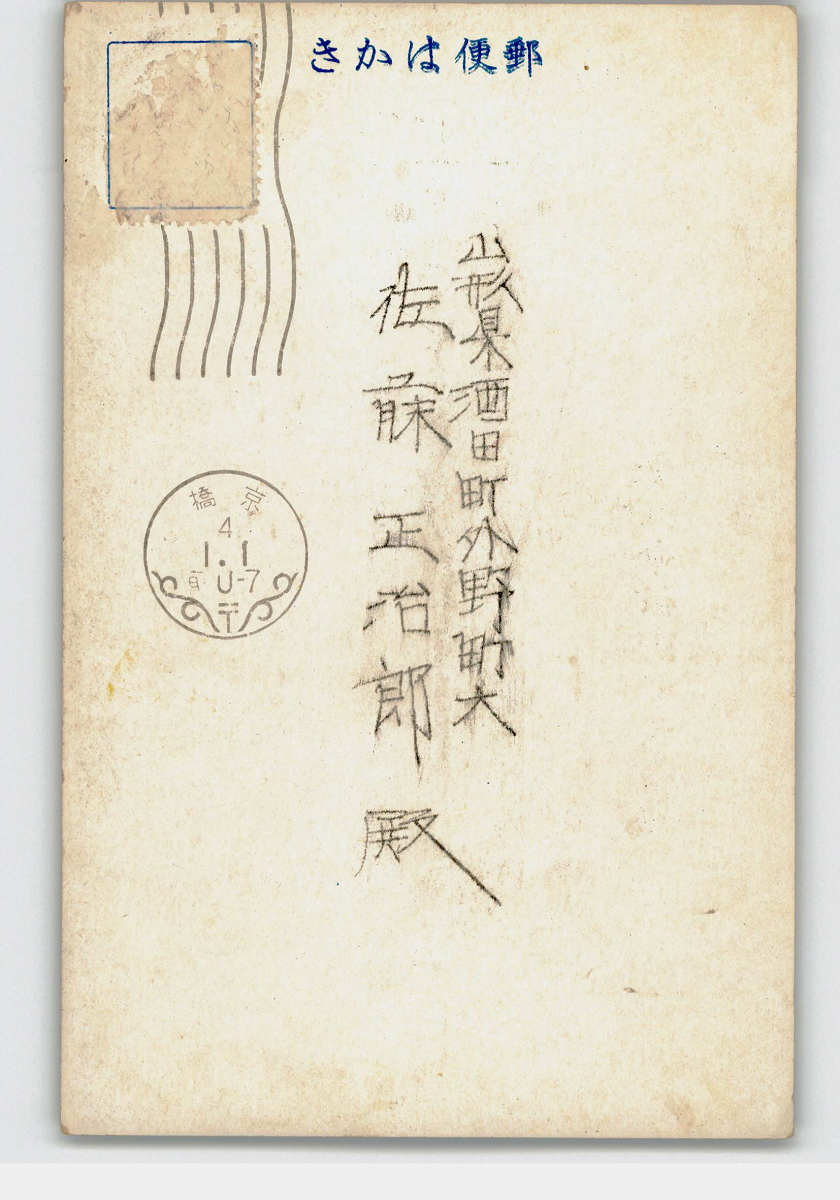 郵便はかき
山形県酒田町外野町大
佐藤正治郎殿
京橋
4.
1.1
前 0-7
〒